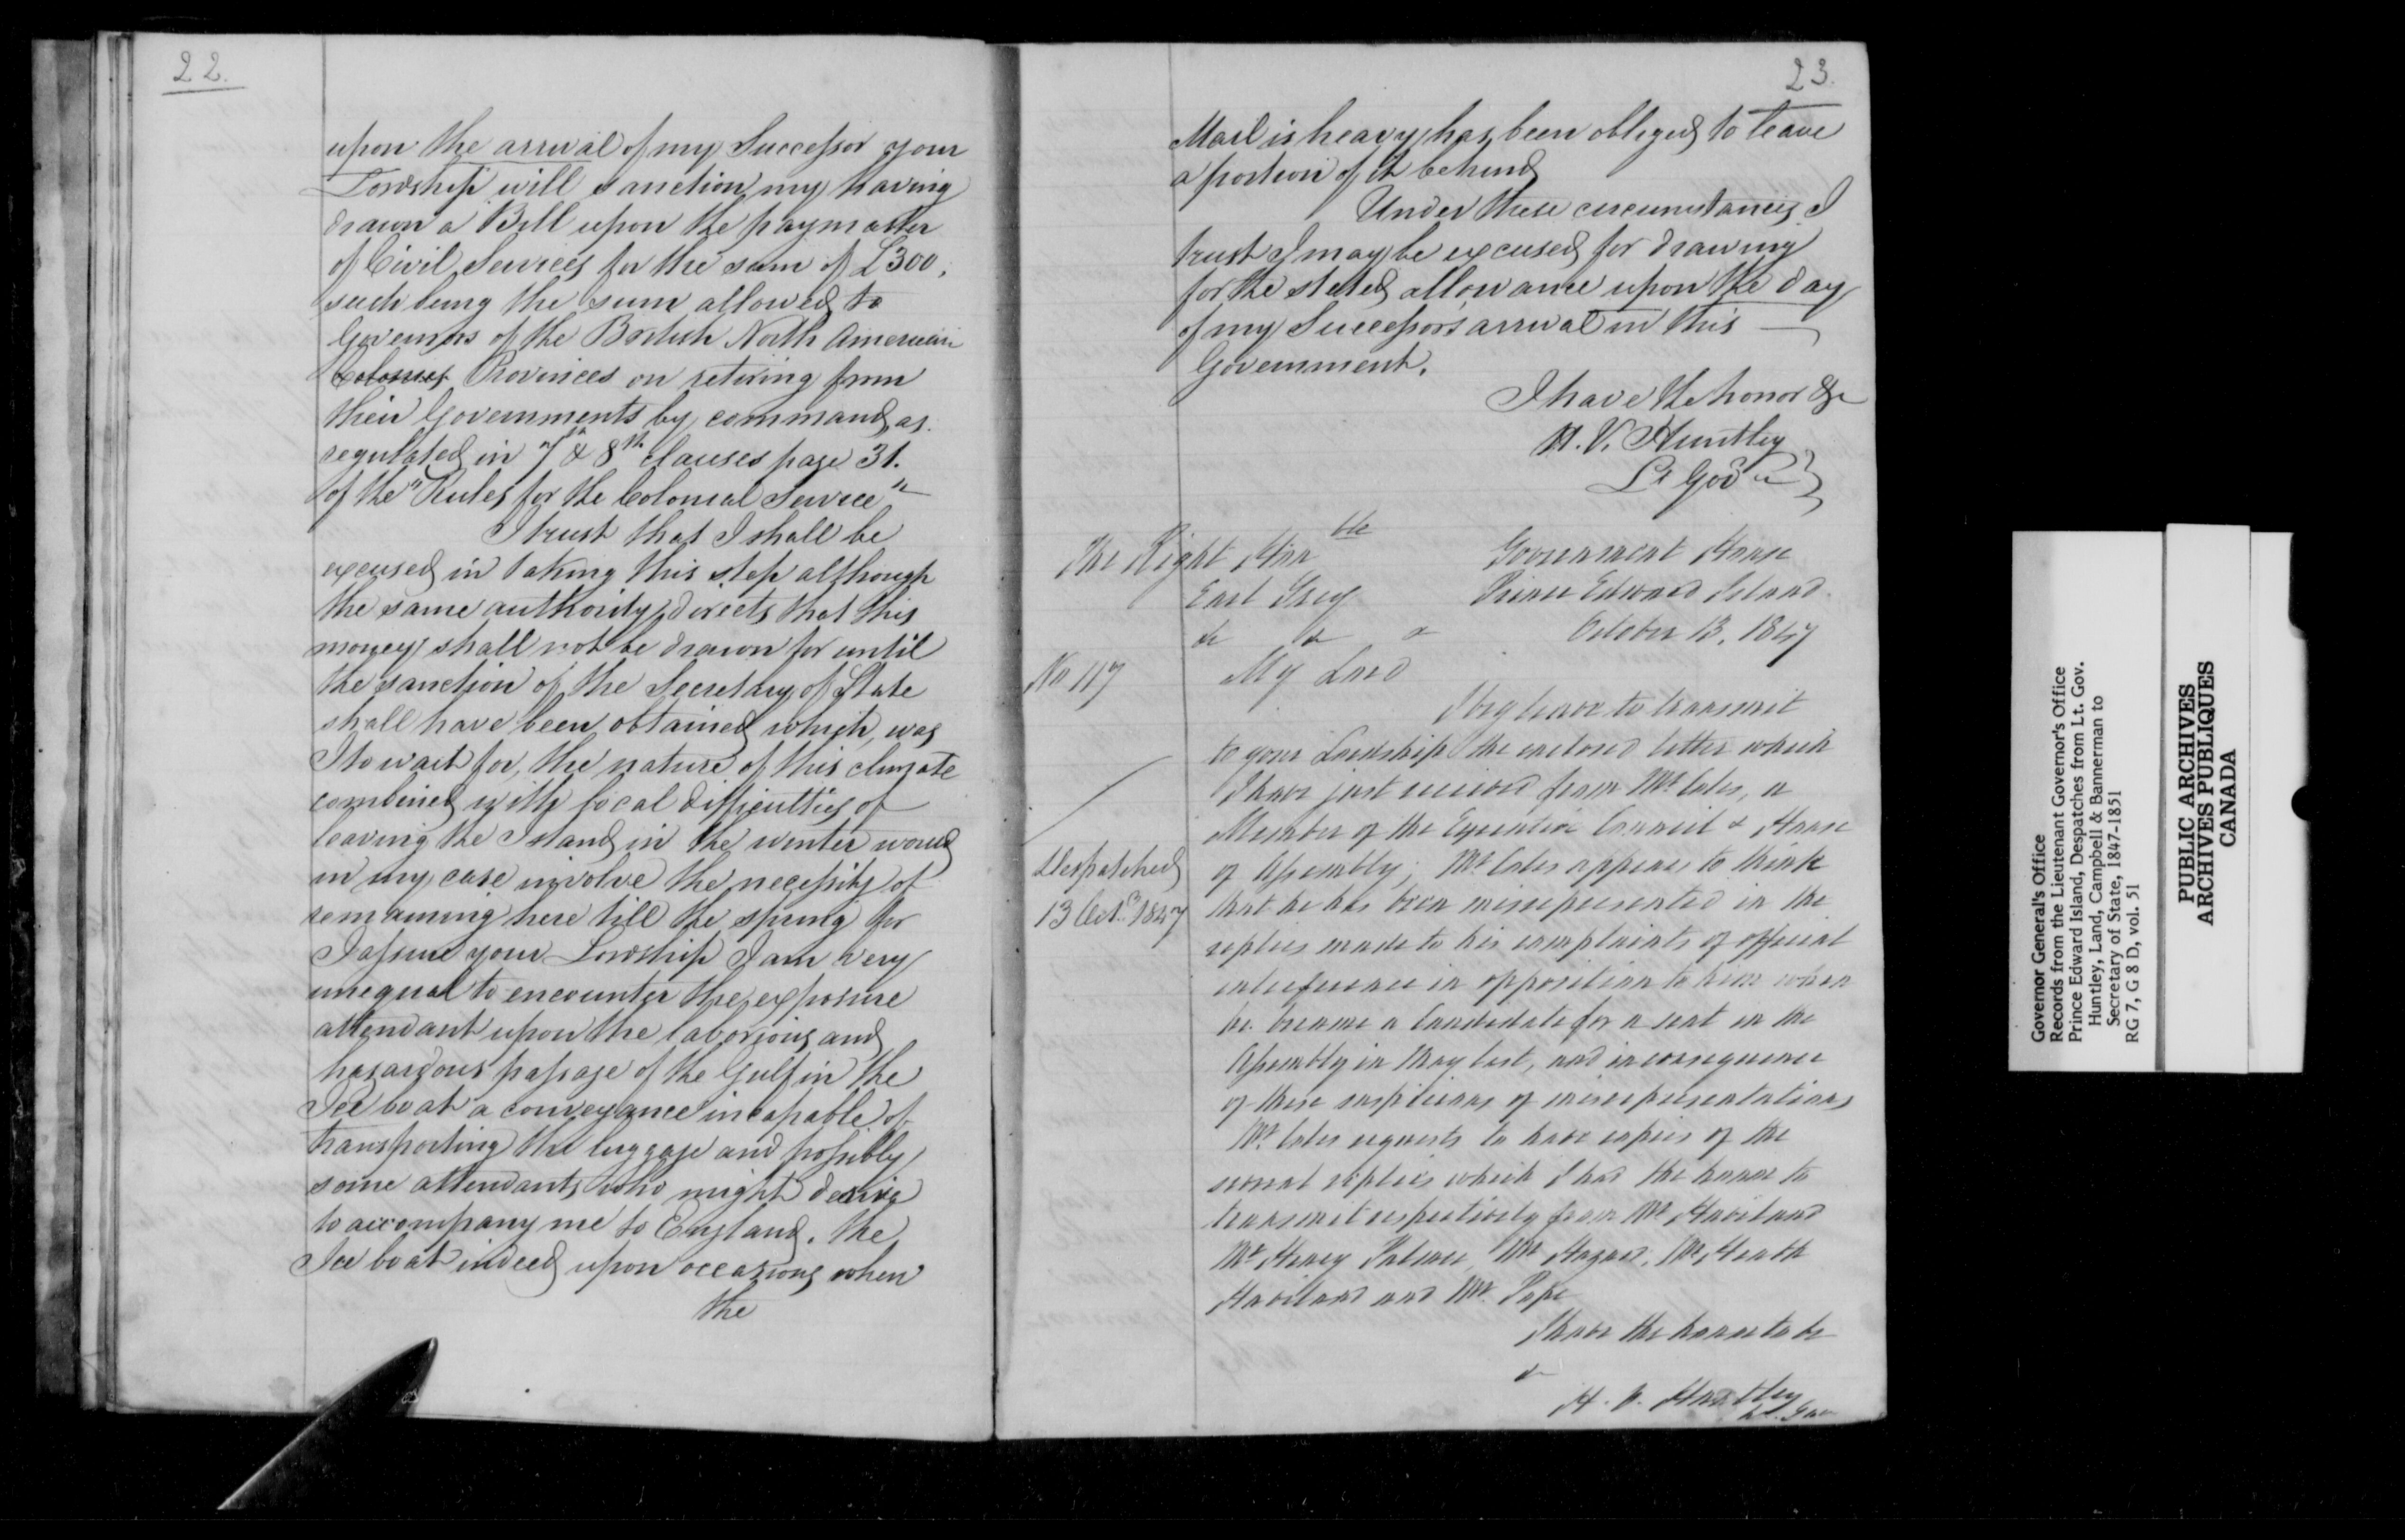 22.
upon the arrival of my Successor your
Lordship will sanction my having
drawn a Bill upon the paymaster
of Civil Services for the sum of £300,
such being the sum allowed to
Governors of the British North American
Colonies Provinces on retiring from
their Governments by command, as
regulated in 7th & 8th clauses page 31.
of the "Rules for the Colonial Service"
I trust that I shall be
excused in taking this step although
the same authority directs that this
money shall not be drawn for until
the sanction of the Secretary of State
shall have been obtained which, was
I to wait for, the nature of this climate
combined with local difficulties of
leaving the Island in the winter would
in my case involve the necessity of
remaining here till the spring for
I assure your Lordship I am very
unequal to encounter the exposure
attendant upon the laborious and
hazardous passage of the Gulf in the
Ice boat a conveyance incapable of
transporting the luggage and possibly
some attendants who might desire
to accompany me to England. The
Ice boat indeed upon occasions when
the
23.
Mail is heavy has been obliged to leave
a portion of it behind
Under these circumstances I
trust I may be excused for drawing
for the stated allowance upon the day
of my Successors arrival in this
Government.
I have the honor &c
H. V. Huntley
Lt Govr
The Right Honble
Earl Grey
& & &
Government House
Prince Edward Island
October 13, 1847
No 117
My Lord
I beg leave to transmit
to your Lordship the enclosed letter which
I have just received from Mr Coles, a
Member of the Executive Council & House
of Assembly; Mr Coles appears to think
that he has been misrepresented in the
replies made to his complaints of official
interference in opposition to him when
he became a Candidate for a seat in the
Assembly in May last, and in consequence
of these suspicions of misrepresentations
Mr Coles requests to have copies of the
several replies which I had the honor to
transmit respectively from Mr Haviland
Mr Henry Palmer, Mr Hazard, Mr Heath
Haviland and Mr Pope
I have the honor to be
&
H. V. Huntley
Lt. Gov
Despatched
13 Oct. 1847
Governor General's Office
Records from the Lieutenant Governor's Office
Prince Edward Island, Despatches from Lt. Gov.
Huntley, Land, Campbell & Bannerman to
Secretary of State, 1847-1851
RG 7, G 8 D, vol. 51
PUBLIC ARCHIVES
ARCHIVES PUBLIQUES
CANADA